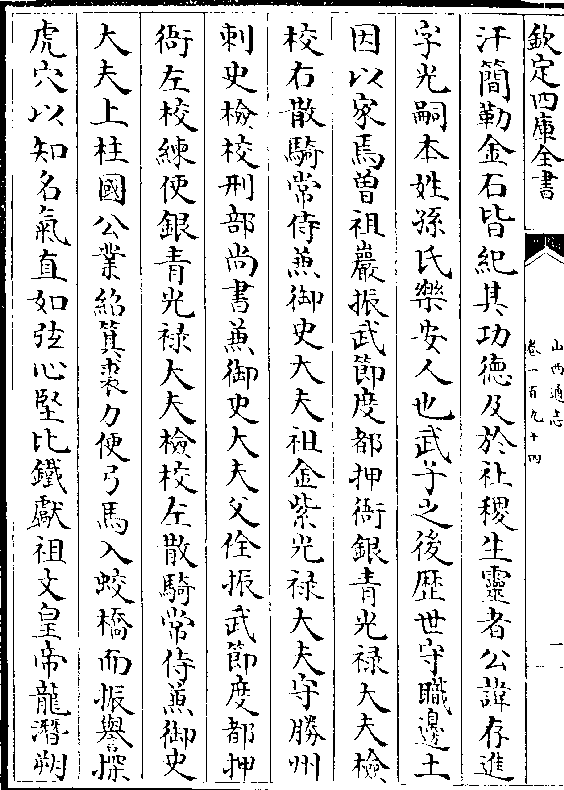 欽定四庫全書
山西通志
卷一百九十四
一
汗簡勒金石皆紀其功德及於社稷生靈者公諱存進
字光嗣本姓孫氏樂安人也武子之後歴世守職邊土
因以家焉曽祖巖振武節度都押衙銀青光禄大夫檢
校右散騎常侍兼御史大夫祖金紫光禄大夫守勝州
刺史檢校刑部尚書兼御史大夫父佺振武節度都押
衙左校練使銀青光禄大夫檢校左散騎常侍兼御史
大夫上柱國公業紹箕裘力便弓馬入蛟橋而振譽探
虎穴以知名氣直如弦心堅比鐵獻祖文皇帝龍潛朔